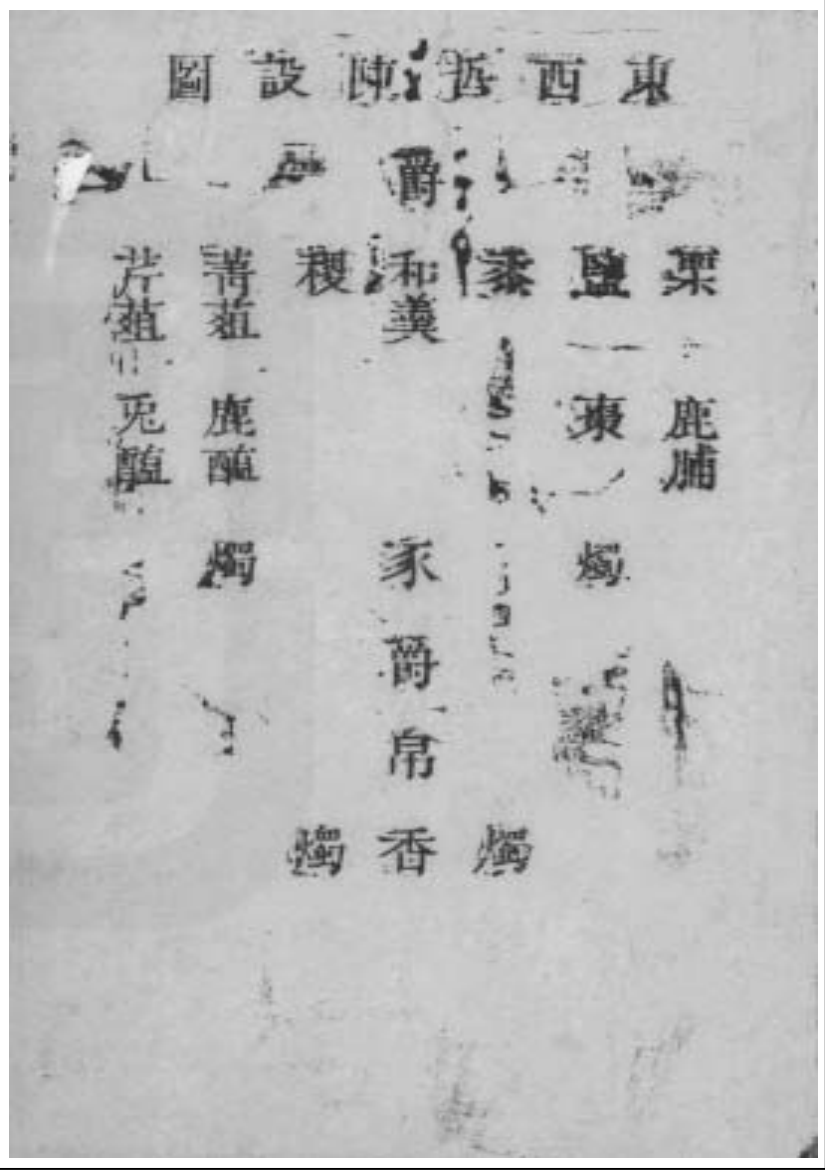 東西哲陳設圖
爵
栗 鹽 黍 和羹 稷 菁菹 芹菹
鹿脯 棗 鹿醢 兎醢
燭 豕 燭
爵
帛
燭 香 燭